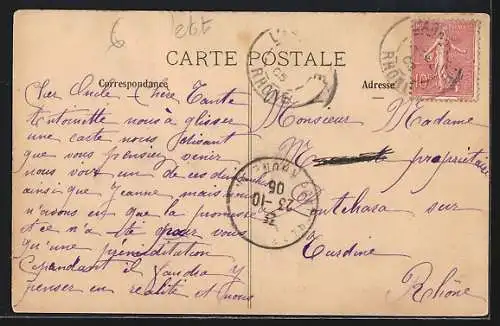 6 26t
CARTE POSTALE
Correspondance
Adresse
RHONE
RHONE
Cher Oncle Chère Tante
Antoinette nous a glisser
une carte nous disant
que vous pensiez venir
nous voir un de ces dimanches
ainsi que Jeanne mais nous
n'avons eu que la promesse
et ce n'a été pour vous
qu'une préméditation
Cependant il faudra y
penser en réalité et nous
Monsieur Madame
propriétaire
Pontchara sur
Turdine
Rhône
23-10
06